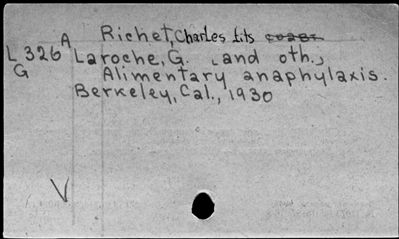 A Richet, Charles fils
L 326 Laroche, G. [and oth.]
G Alimentary anaphylaxis.
Berkeley, Cal., 1930
V